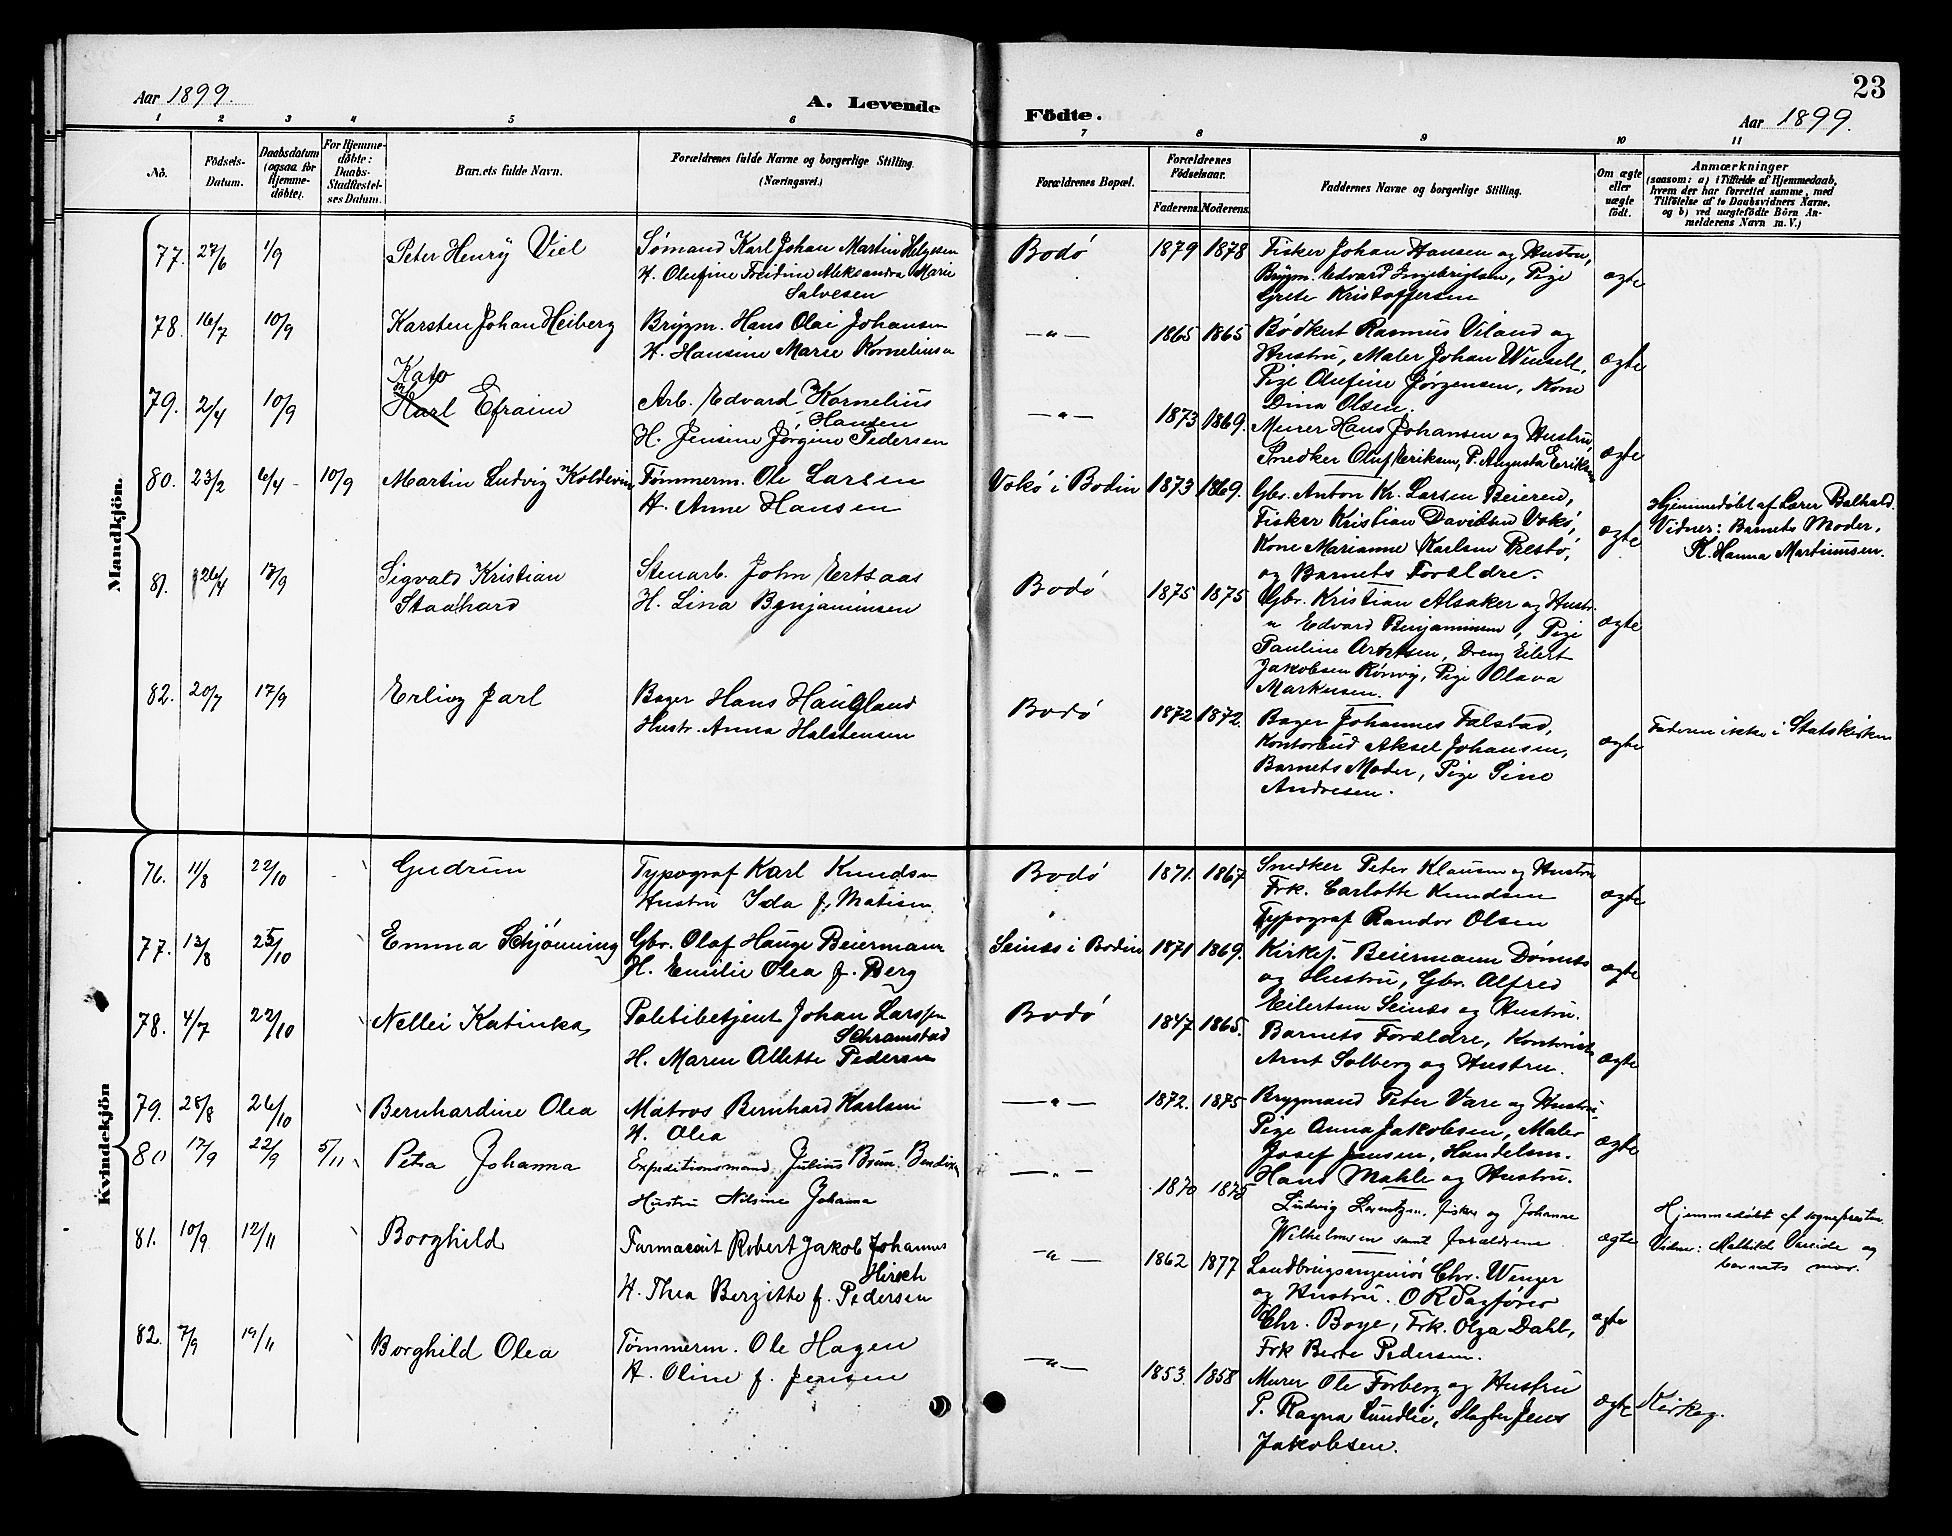 23
Aar 1899.
A. Levende
Födte.
Aar 1899.
1 2 3 4 5 6 7 8 9 10 11
No.
Födsels-
Datum.
Daabsdatum
(ogsaa for
Hjemme-
döbte).
For Hjemme-
döbte:
Daabs-
Stadfæstel-
ses Datum.
Barnets fulde Navn.
Forældrenes fulde Navne og borgerlige Stilling.
(Næringsvei.)
Forældrenes Bopæl.
Forældrenes
Födselsaar.
Faderens. Moderens.
Faddernes Navne og borgerlige Stilling.
Om ægte
eller
uægte
födt.
Anmærkninger
(saasom: a) i Tilfælde af Hjemmedaab,
hvem der har forrettet samme, med
Tilföielse af to Daabsvidners Navne,
og b) ved uægtefödte Börn An-
melderens Navn m. V.)
Mandkjön.
77. 27/6 1/9 Peter Henry Viel
Sømand Karl Johan Martin Helgesen
H. Olufine Fredine Aleksandra Marie
Salvesen
Bodø 1879 1878
Fisker Johan Hansen og Hustru,
Brygm. Edvard Ingebrigtsen, Pige
Grete Kristoffersen
ægte
78. 16/7 10/9 Karsten Johan Heiberg
Brygm. Hans Olai Johansen
H. Hansine Marie Kornelius
—"— 1865 1865
Bødkert Rasmus Viland og
Hustru, Maler Johan
Pige Olufine Jørgensen, Kone
Dina Olsen.
ægte
79. 2/4 10/9 Kato
Karl Efraim
Arb. Edvard Kornelius
Hansen
H. Jensine Jørgine Pedersen
—"— 1873 1869.
Murer Hans Johansen og Hustru,
Snedker Oluf Eriksen, P. Augusta Eriksen
ægte
80. 23/2 6/4 - 10/9 Martin Ludvig Koldevin
Tømmerm. Ole Larsen
H. Anne Hansen
Vokø i Bodin 1873 1869.
Gbr. Anton Kr. Larsen Beieren,
Fisker Kristian Davidsen Vokø,
Kone Marianne Karlsen Prestø,
og Barnets Forældre.
ægte
Hjemmedøbt af Lærer Balhald.
Vidner: Barnets Moder,
K. Hanna Martinusen.
81. 26/4 17/9 Sigvald Kristian
Staalhard
Stenarb. John Ertsaas
H. Lina Benjaminsen
Bodø 1875 1875
Gbr. Kristian Alsaker og Hustr.
" Edvard Benjaminsen, Pige
Pauline Arntsen, Dreng Eilert
Jakobsen Rønvig, Pige Olava
Markusen.
ægte
82. 20/7 17/9 Erling Jarl
Bager Hans Haugland
Hustr. Anna Halstensen
Bodø 1872 1872.
Bager Johannes Falstad,
Kontorbud Aksel Johansen,
Barnets Moder, Pige Sine
Andresen.
ægte
Faderen ikke i Statskirken
Kvindekjön
76. 11/8 22/10 Gudrun
Typograf Karl Knudsen
Hustru Ida f. Matisen
Bodø 1871. 1867
Snedker Peter Klausen og Hustru
Frk. Carlotte Knudsen
Typograf Randor Olsen
ægte
77. 13/8 25/10 Emma Schjønning
Gbr. Olaf Hauge Beiermann
H. Emilie Olea f. Berg
Seines i Bodin 1871 1869.
Kirkes. Beiermann Dønnes
og Hustru, Gbr. Alfred
Eilertsen Seines og Hustru.
ægte
78. 4/7 22/10 Nellei Katinka
Politibetjent Johan Larssen
Schramstad
H. Maren Allette Pedersen
Bodø 1847 1865.
Barnets Forældre, Kontorist
Arnt Solberg og Hustru.
ægte
79. 28/8 26/10 Bernhardine Olea
Matros Bernhard Karlsen
H. Olea
—"— 1872. 1875
Brygmand Peter Vare og Hustru,
Pige Anna Jakobsen, Maler
Josef Jensen, Handelsm.
Hans Mahle og Hustru.
ægte
80 17/9 22/9 5/11 Petra Johanna
Expeditionsmand Julius Brun Bendixen
Hustru Nilsine Johanna
—"— 1870 1875
Ludvig Lorentzen, fisker og Johanne
Wilhelmsen samt forældrene
ægte
Hjemmedøbt af sognepresten.
Vidne: Mathild Vareide og
barnets mor.
81. 10/9 12/11 Borghild
Farmaceut Robert Jakob Johannes
Hirsch
H. Thea Bergitte f. Pedersen
—"— 1862 1877
Landbrugsingeniør Chr. Wenger
og Hustru. O R Sagfører
Chr. Boye, Frk. Olga Dahl,
Frk Berte Pedersen.
ægte
82. 7/9 19/11 Borghild Olea
Tømmerm. Ole Hagen
H. Oline f. Jensen
—"— 1853. 1858
Murer Ole Forberg og Hustru
P. Ragna Lundlie, Slagter Jens
Jakobsen.
ægte
Kirkeg.